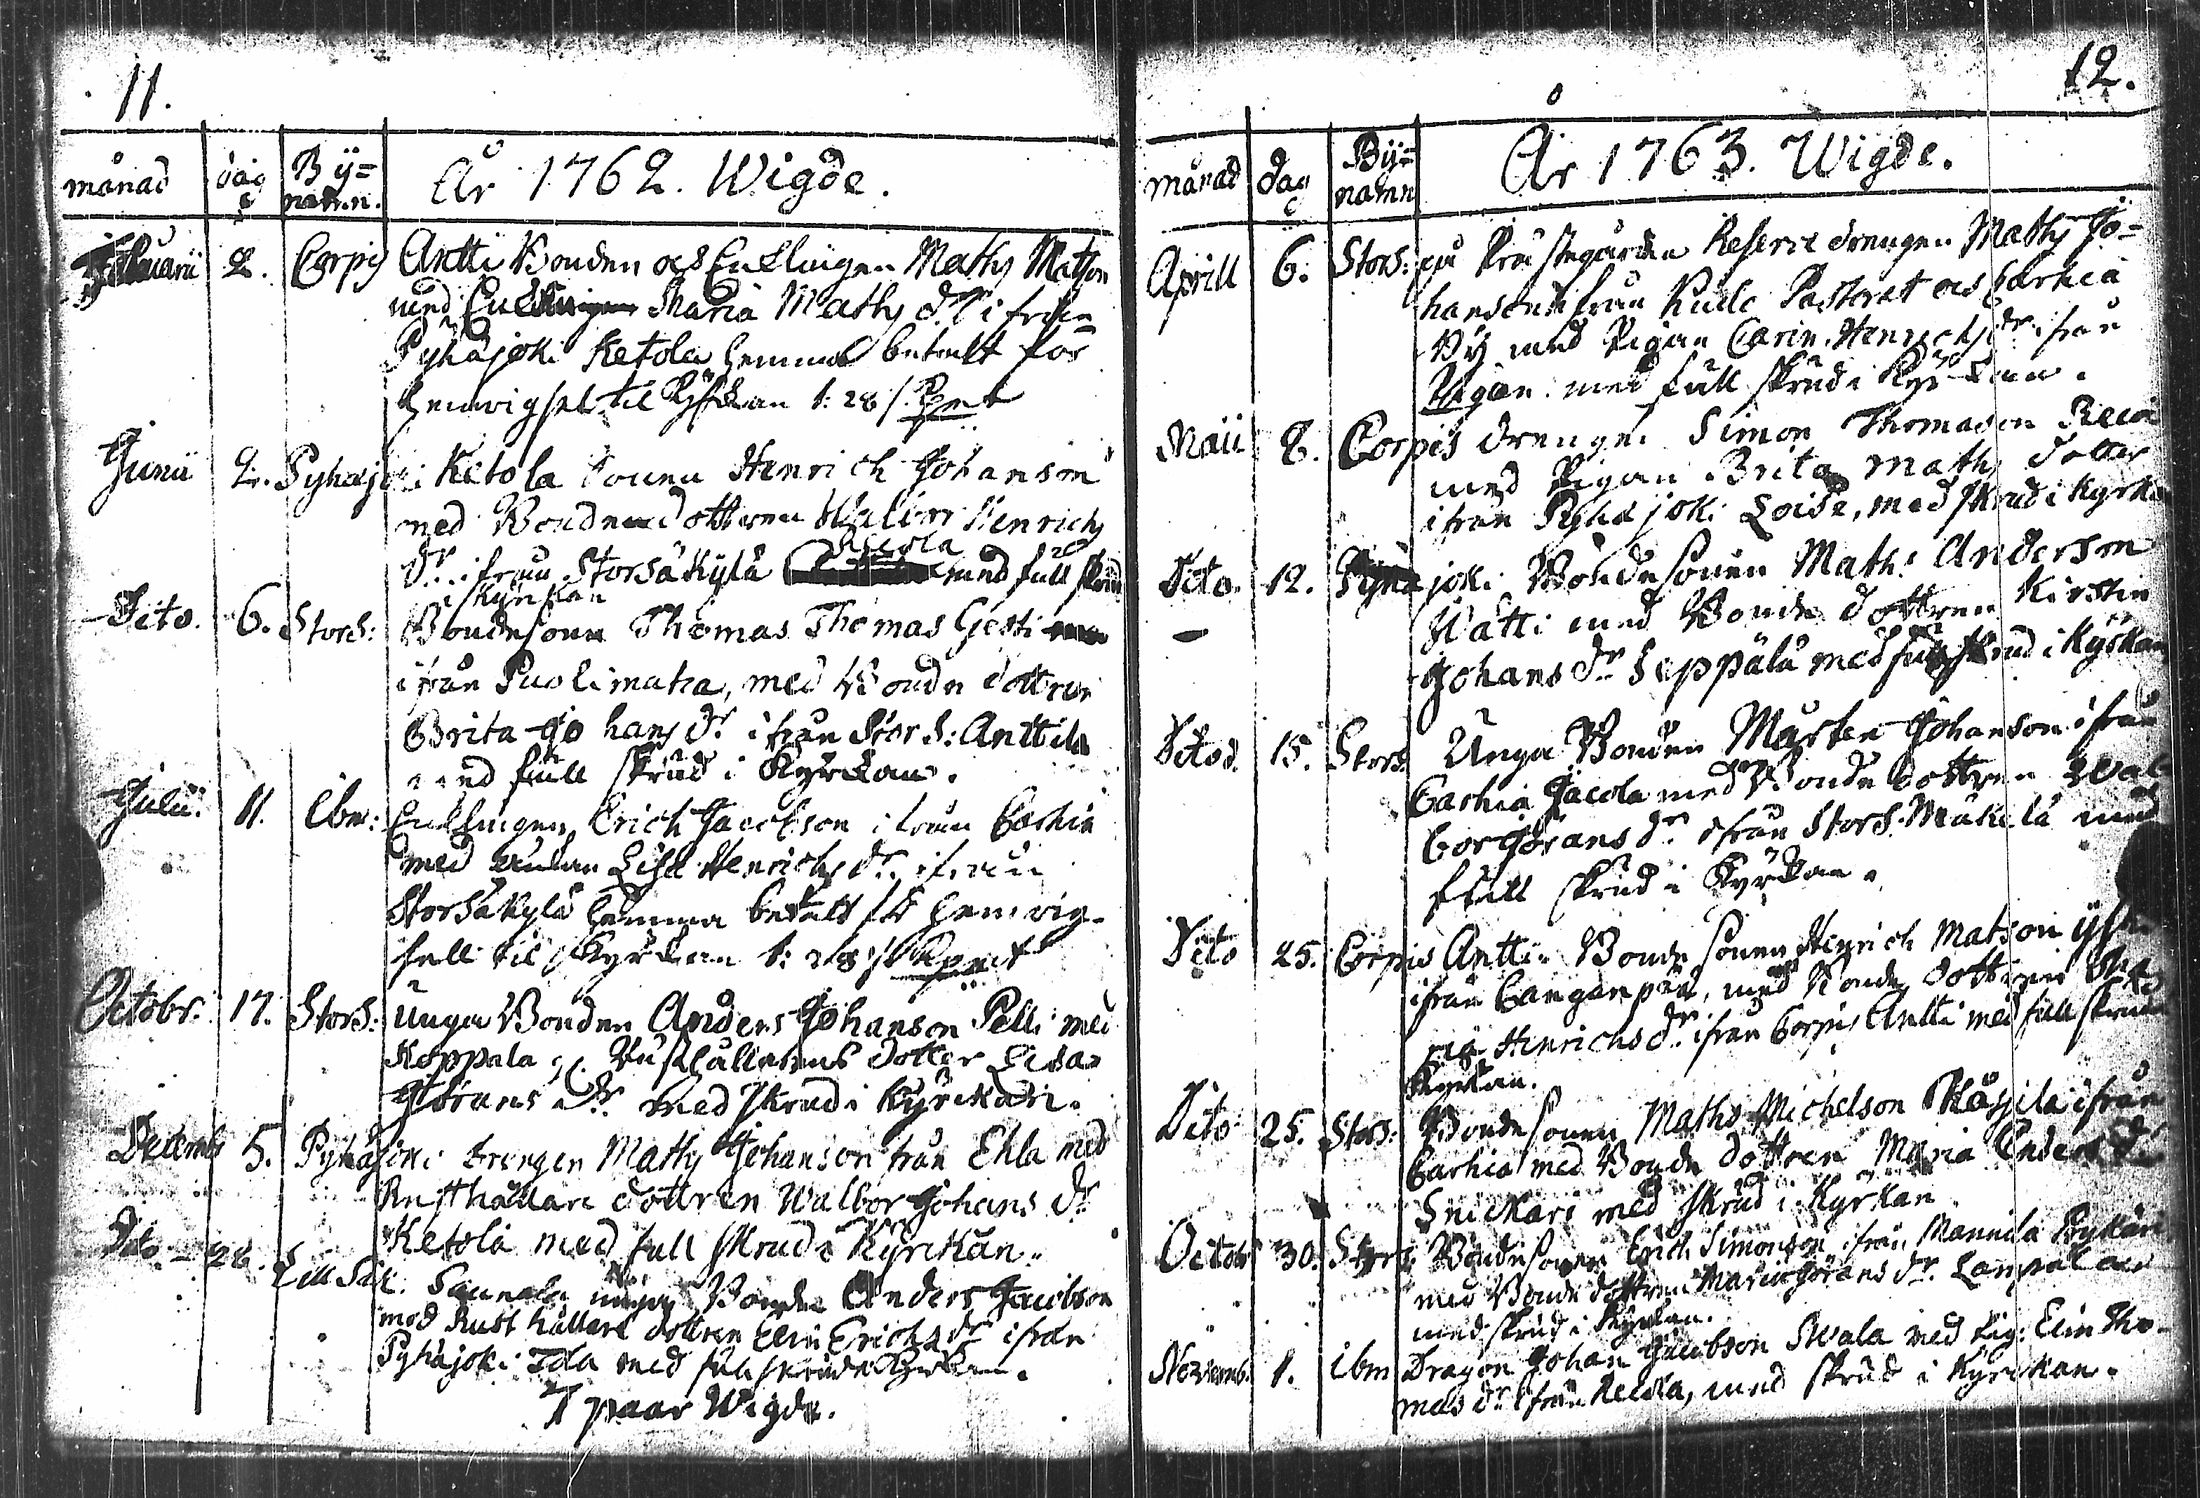 11.
månad dag Bÿ= namn. År 1762. Wigde.
Februarii 2. Corpis Antti Bonden och Encklingen Maths Matson
med Maria Maths dr ifrån
Pyhäjoki Ketola hemma betalt för
hemvigsel til Kyrkan 1: 28 /. Kpmt
Junii 2. Pyhäjoki Ketola sonen Henrich Johanson
med Bonde dottren Walborg Henrichs
dr. ifrån Storsäkylä med full skrud
i Kyrkan
Dito. 6. StorS: Bondesonen Thomas Thomas Gesti
ifrån Puolimatca, med Bonde dottren
Brita Johans dr ifrån StorS: Anttila
med full skrud i Kyrkan.
Julii. 11. Ibm: Encklingen Erich Jacobson ifrån
med Enkan Lisa Henrichs dr. ifrån
Storsäkylä hemma betalt för hemvig-
sell til Kyrkan 1: 28 / Kpmt
Octobr: 17. StorS: Unga Bonden Anders Johanson Pelli med
Koppala Rusthållarens dotter Lisa
Görans dr. med skrud i Kyrckan.
Decembr 5. Pyhäjoki drengen Maths Johanson från Ehla med
Rusthållare dottren Walbor Johans dr
Ketola med full skrud i Kyrckan.
Dito - 26. Lill Säk. Saunala unga Bonden Anders Jacobson
med Rusthållare dottren Elin Erichs dr ifrån
Pyhäjoki Isla med full skrud i Kyrkan.
7 paar Wigde.
12.
månad dag Bÿ= namn År 1763. Wigde.
Aprill 6. StorS: på Prästegården Reserve drengen Maths Jo=
hanson ifrån Kiulo Pastorat och
Bÿ med Pigan Carin Henrichs dr ifrån
med full skrud i Kyrckan.
Maii 8. Corpis drengen Simon Thomason
med Pigan Brita Maths dotter
ifrån Pyhäjoki Loise, med skrud i Kyrkan
Dito. 12. Pyhäjoki Bondesonen Maths Anderson
- Watti med Bonde dottren Kirstin
Johans dr Seppälä med full skrud i Kyrkan
Ditod. 15. StorS Unga Bonden Mårten Johanson ifrån
Jacola med Bonde dottren Wal
bor Görans dr ifrån StorS. Mäkilä med
full skrud i Kyrckan.
Dito 25. Corpis Antti Bonde sonen Henrich Matson
ifrån Canganpää, med Bonde dottren
Henrichs dr ifrån Corpis Antti med full skrud
Kyrkan.
Dito 25. StorS: Bonde sonen Maths Michelson ifrån
med Bonde dottren Maria Anders dr
Snickari med skrud i Kyrkan
Octobr 30. StorS: Bondesonen Erich Simonson ifrån Mannila
med Bonde dottren Maria Görans dr.
med skrud i Kyrkan.
Novemb. 1. ibm Dragon Johan Jacobson Swala med Pig: Elin Tho-
mas dr ifrån, med skrud i Kyrckan.